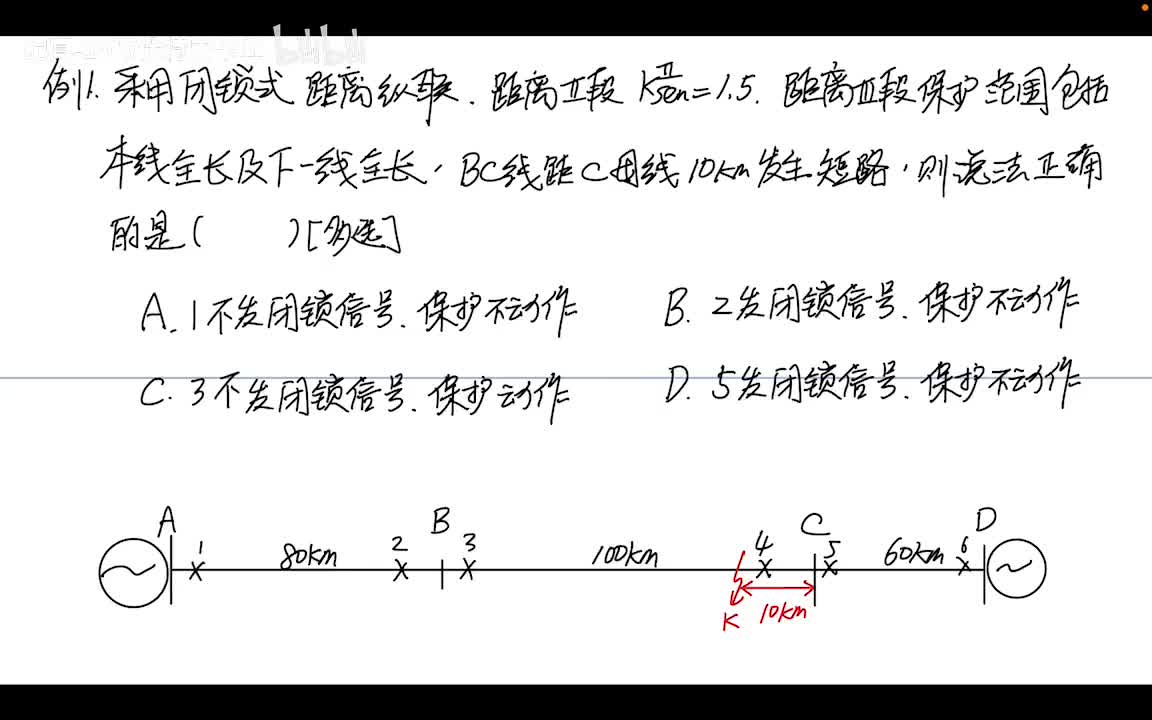 bilibili
例1. 采用闭锁式 距离纵联. 距离Ⅱ段 KⅡsen=1.5. 距离Ⅲ段保护范围包括
本线全长及下一线全长, BC线距C母线10km发生短路, 则说法正确
的是( )[多选]
A. 1不发闭锁信号. 保护不动作 B. 2发闭锁信号. 保护不动作
C. 3不发闭锁信号. 保护动作 D. 5发闭锁信号. 保护不动作
A B C D
1 80km 2 3 100km 4 5 60km 6
K 10km